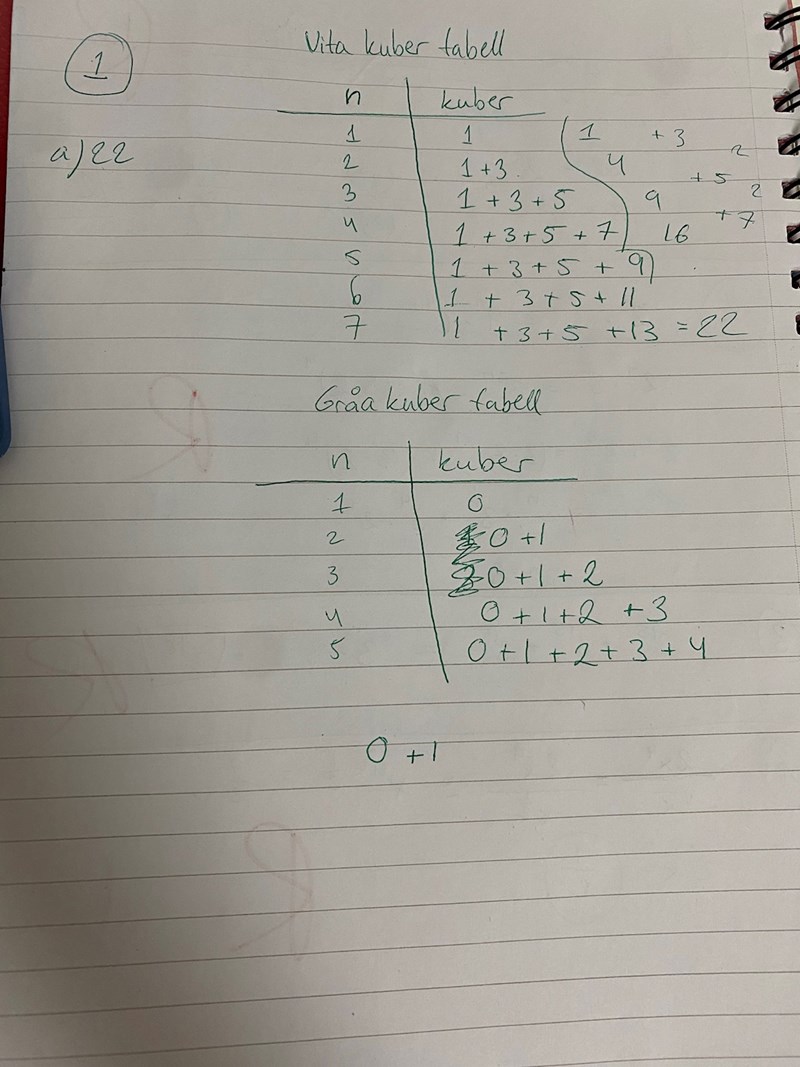 Vita kuber tabell
1
n kuber
a) 22
1 1 1 +3
2 1+3 4 2
3 1 + 3 + 5 9 +5 2
4 1 +3+5 + 7 16 +7
5 1 + 3 + 5 + 9
6 1 + 3 + 5 + 11
7 1 +3+5 +13 = 22
Gråa kuber tabell
n kuber
1 0
2 0 +1
3 0 +1 + 2
4 0 +1+2 +3
5 0 +1 +2+ 3 + 4
0 +1